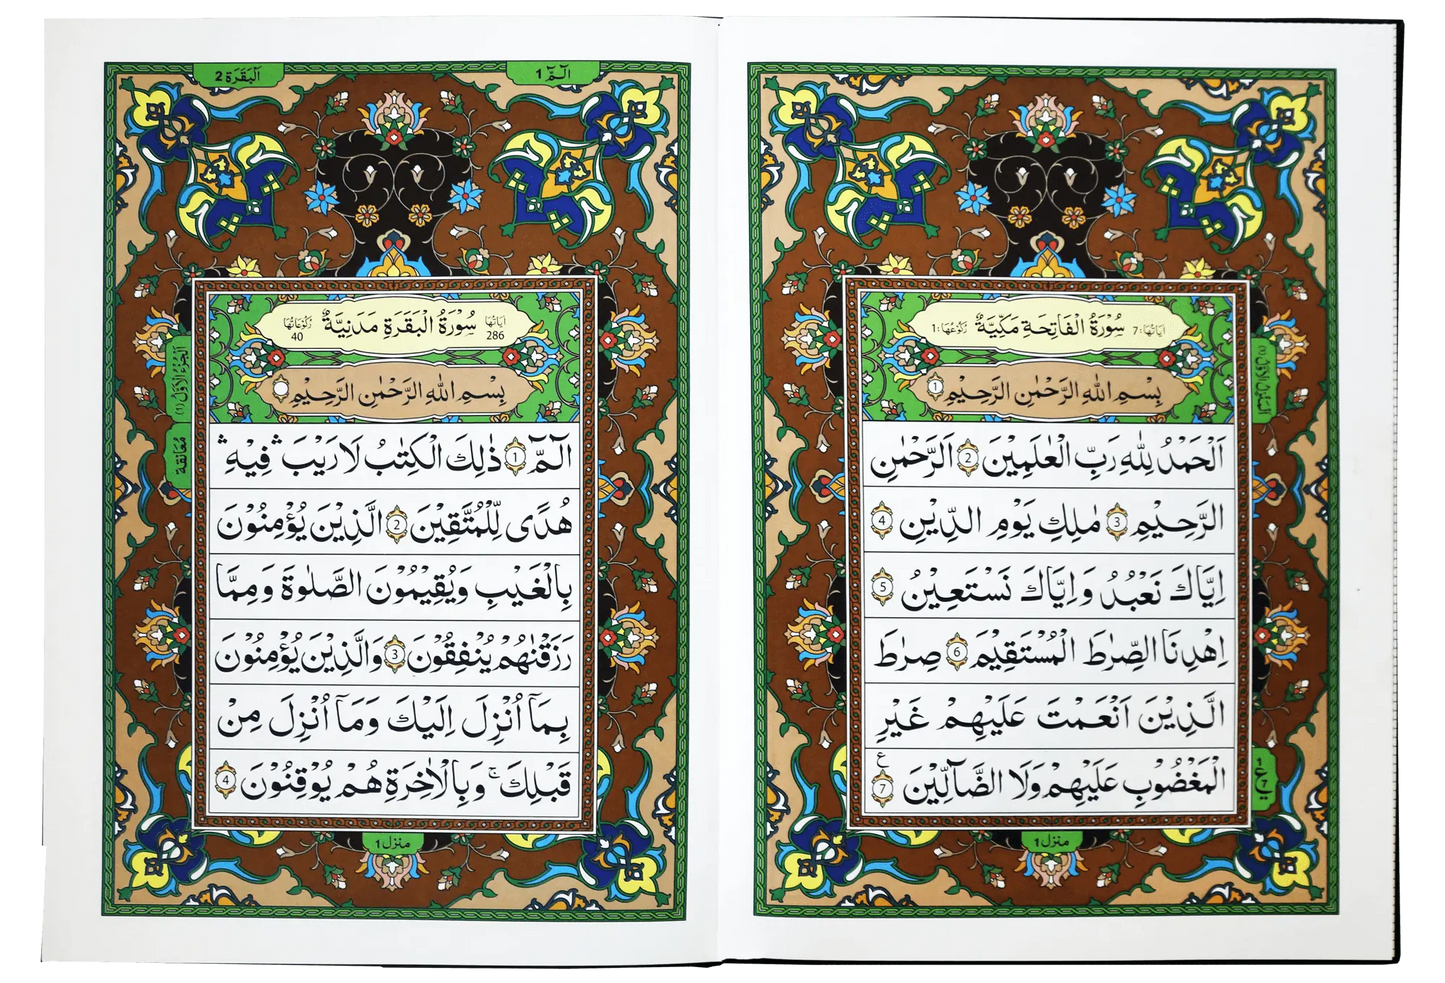 سُوْرَةُ الْفَاتِحَةِ مَكِّيَّةٌ
اٰيَاتُهَا: 7
رُكُوْعُهَا: 1
بِسْمِ اللّٰهِ الرَّحْمٰنِ الرَّحِيْمِ 1
اَلْحَمْدُ لِلّٰهِ رَبِّ الْعٰلَمِيْنَ 2 الرَّحْمٰنِ
الرَّحِيْمِ 3 مٰلِكِ يَوْمِ الدِّيْنِ 4
اِيَّاكَ نَعْبُدُ وَاِيَّاكَ نَسْتَعِيْنُ 5
اِهْدِنَا الصِّرَاطَ الْمُسْتَقِيْمَ 6 صِرَاطَ
الَّذِيْنَ اَنْعَمْتَ عَلَيْهِمْ غَيْرِ
الْمَغْضُوْبِ عَلَيْهِمْ وَلَا الضَّآلِّيْنَ 7
ع
منزل 1
1 ع 7
الٓمّٓ 1
اَلْبَقَرَة 2
سُوْرَةُ الْبَقَرَةِ مَدَنِيَّةٌ
اٰيَاتُهَا 286
رُكُوْعَاتُهَا 40
بِسْمِ اللّٰهِ الرَّحْمٰنِ الرَّحِيْمِ
الٓمّٓ 1 ذٰلِكَ الْكِتٰبُ لَا رَيْبَ ۛ فِيْهِ ۛ
هُدًى لِّلْمُتَّقِيْنَ 2 الَّذِيْنَ يُؤْمِنُوْنَ
بِالْغَيْبِ وَيُقِيْمُوْنَ الصَّلٰوةَ وَمِمَّا
رَزَقْنٰهُمْ يُنْفِقُوْنَ 3 وَالَّذِيْنَ يُؤْمِنُوْنَ
بِمَآ اُنْزِلَ اِلَيْكَ وَمَآ اُنْزِلَ مِنْ
قَبْلِكَ ۚ وَبِالْاٰخِرَةِ هُمْ يُوْقِنُوْنَ 4
الجزء الاوّل (1)
معانقة
منزل 1